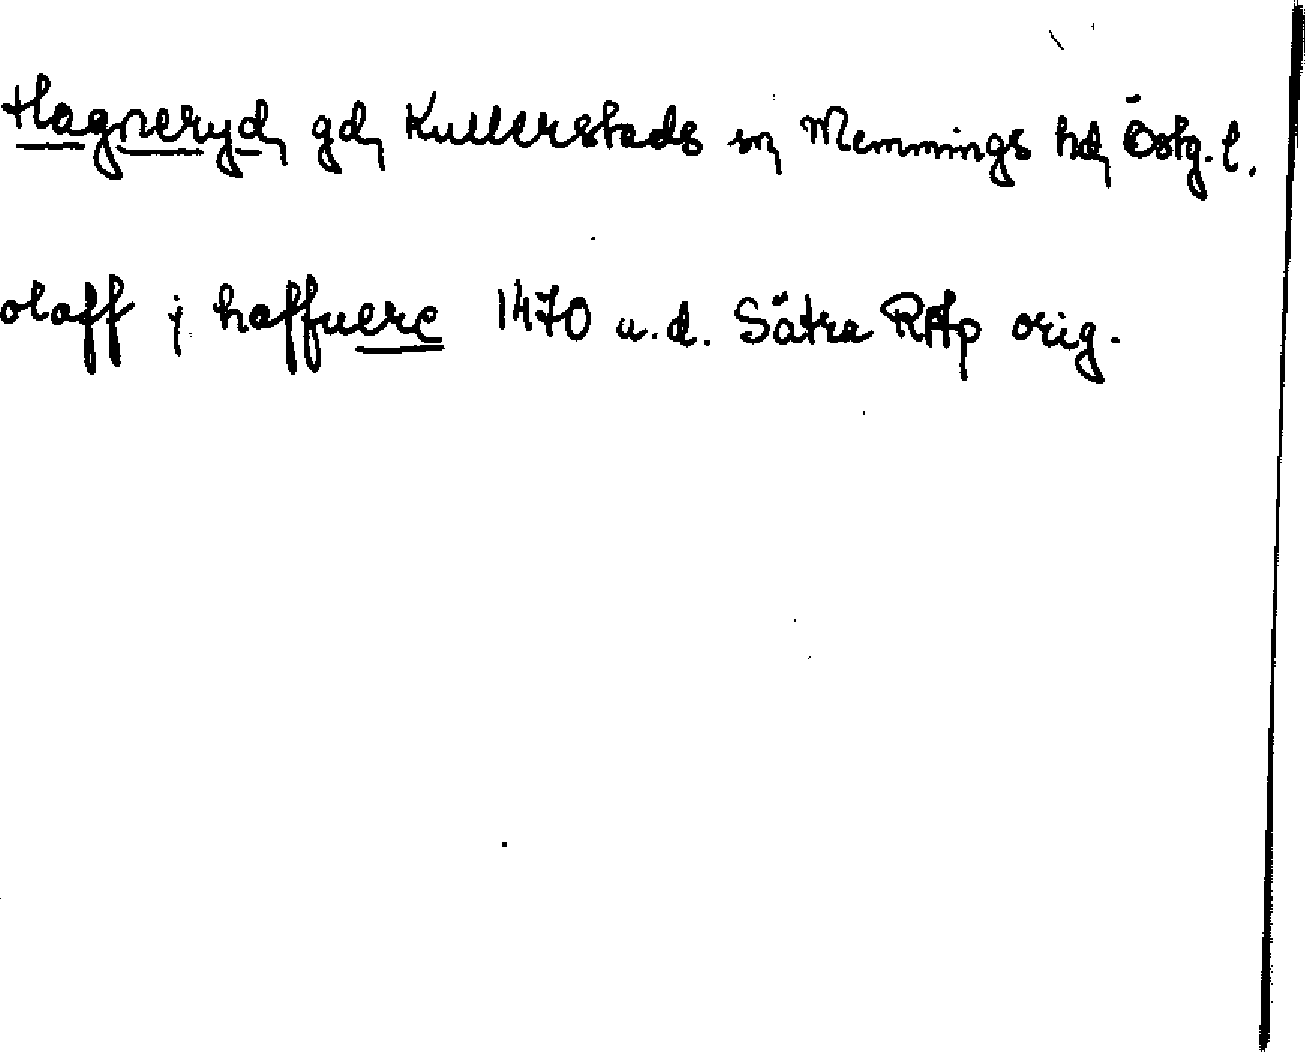 Hagneryd, gd, Kullerstads sn, Memmings hd, Östg. l.
olaff j haffuere 1470 u.d. Sätra RAp orig.